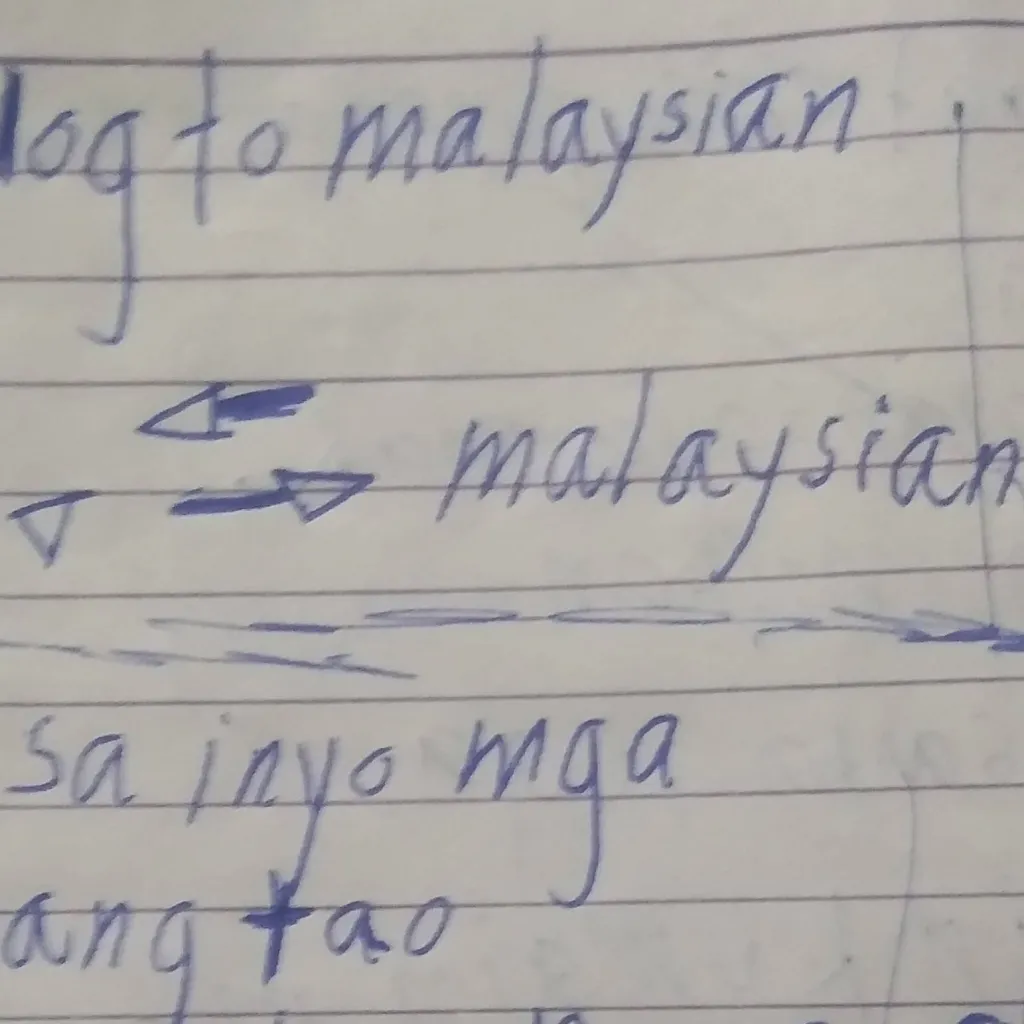 log to malaysian
malaysian
sa inyo mga
ang tao